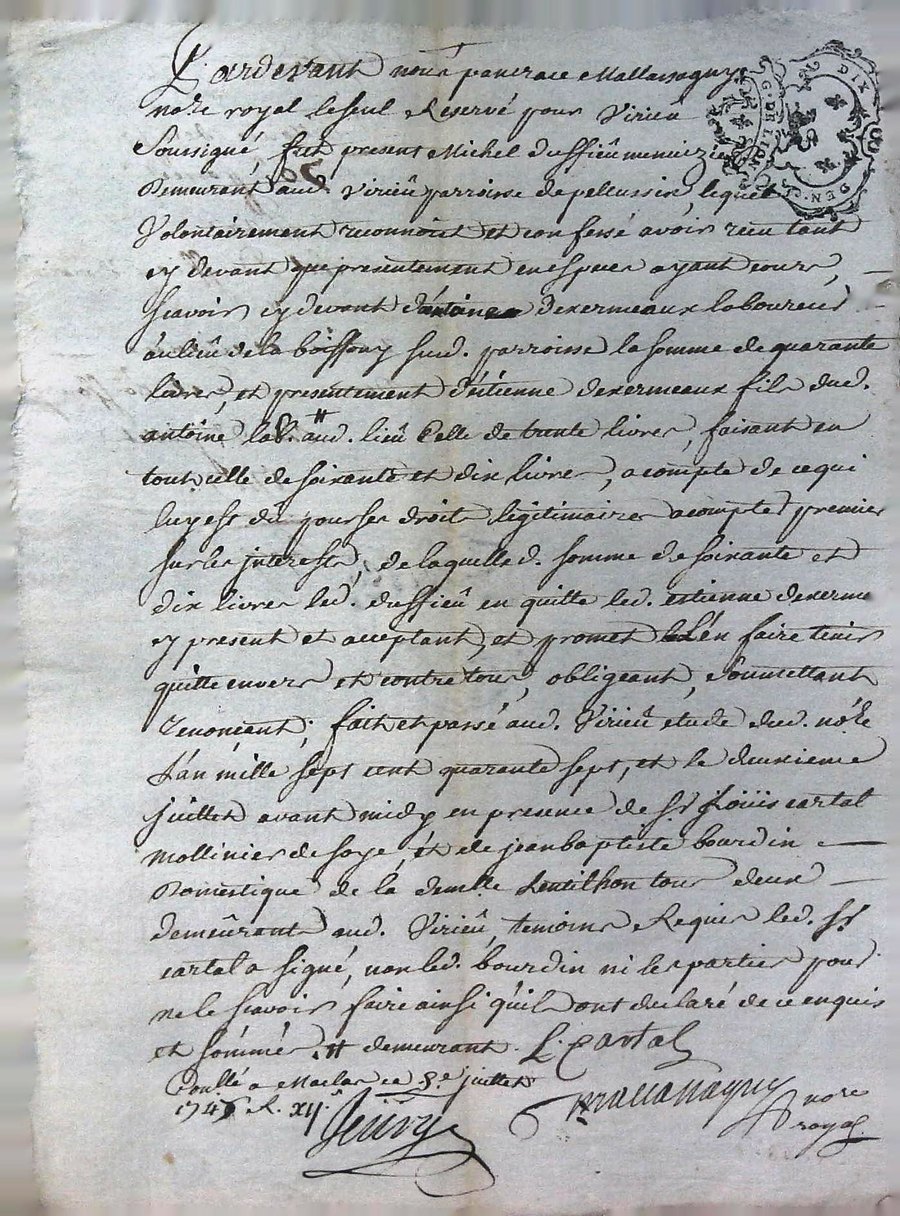 Pardevant nous pancrace Mallassagny
nore royal le seul Reservé pour Virieu
Soussigné, fut present Michel dussieû menuizier
Demeurant aud. Virieû parroisse de pellussin, lequel
Volontairement reconnoict et confessé avoir receu tant
cy devant que presentement en especes ayant cours,
Scavoir cy devant d'antoine dexermeaux laboureur
au lieû de la boissony sud. parroisse la somme de quarante
livres, et presentement d'éstienne dexermeaux fils dud.
antoine lab.r # aud. lieû Celle de trente livres, faisant en
tout celle de soixante et dix livres, acompte de ce qui
luy est du pour ses droits legitimaires acomptes premier
sur les interests, de laquelle d. somme de soixante et
dix livres led. dussieû en quitte led. estienne dexerme
cy present et acceptant, et promet l'en faire tenir
quitte envers et contre tous, obligeant, Soumettant
Renonçant; fait et passé aud. Virieû etude dud. nore
L'an mille sept cent quarante sept, et le deuxieme
juillet avant midy en presence de Sr Loüis cartal
mollinier de soye, et de jean baptiste bourdin
Domestique de la demlle Lentilhon tous deux
demeûrants aud. Virieû, temoins Requis led. Sr
cartal a signé, non led. bourdin ni les parties pour
ne le scavoir faire ainsi qu'ils ont declaré de ce enquis
et sommés .# demeurant. L. Cartal
Conllé a Maclas ce 8e juillet
1747 R. xijs
Mallassagny nore
royal
DIX
DEN.
G. DE LION